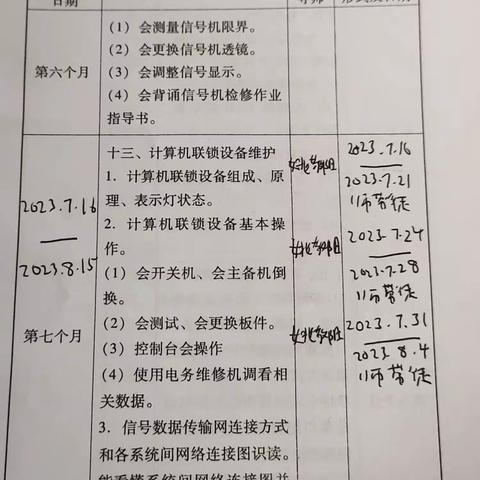 日期
导师
第六个月
（1）会测量信号机限界。
（2）会更换信号机透镜。
（3）会调整信号显示。
（4）会背诵信号机检修作业
指导书。
2023.7.16
2023.8.15
第七个月
十三、计算机联锁设备维护
1．计算机联锁设备组成、原
理、表示灯状态。
2．计算机联锁设备基本操
作。
（1）会开关机、会主备机倒
换。
（2）会测试、会更换板件。
（3）控制台会操作
（4）使用电务维修机调看相
关数据。
3．信号数据传输网连接方式
和各系统间网络连接图识读。
能看懂系统间网络连接图并
2023.7.16
2023.7.21
师带徒
2023.7.24
2023.7.28
师带徒
2023.7.31
2023.8.4
师带徒